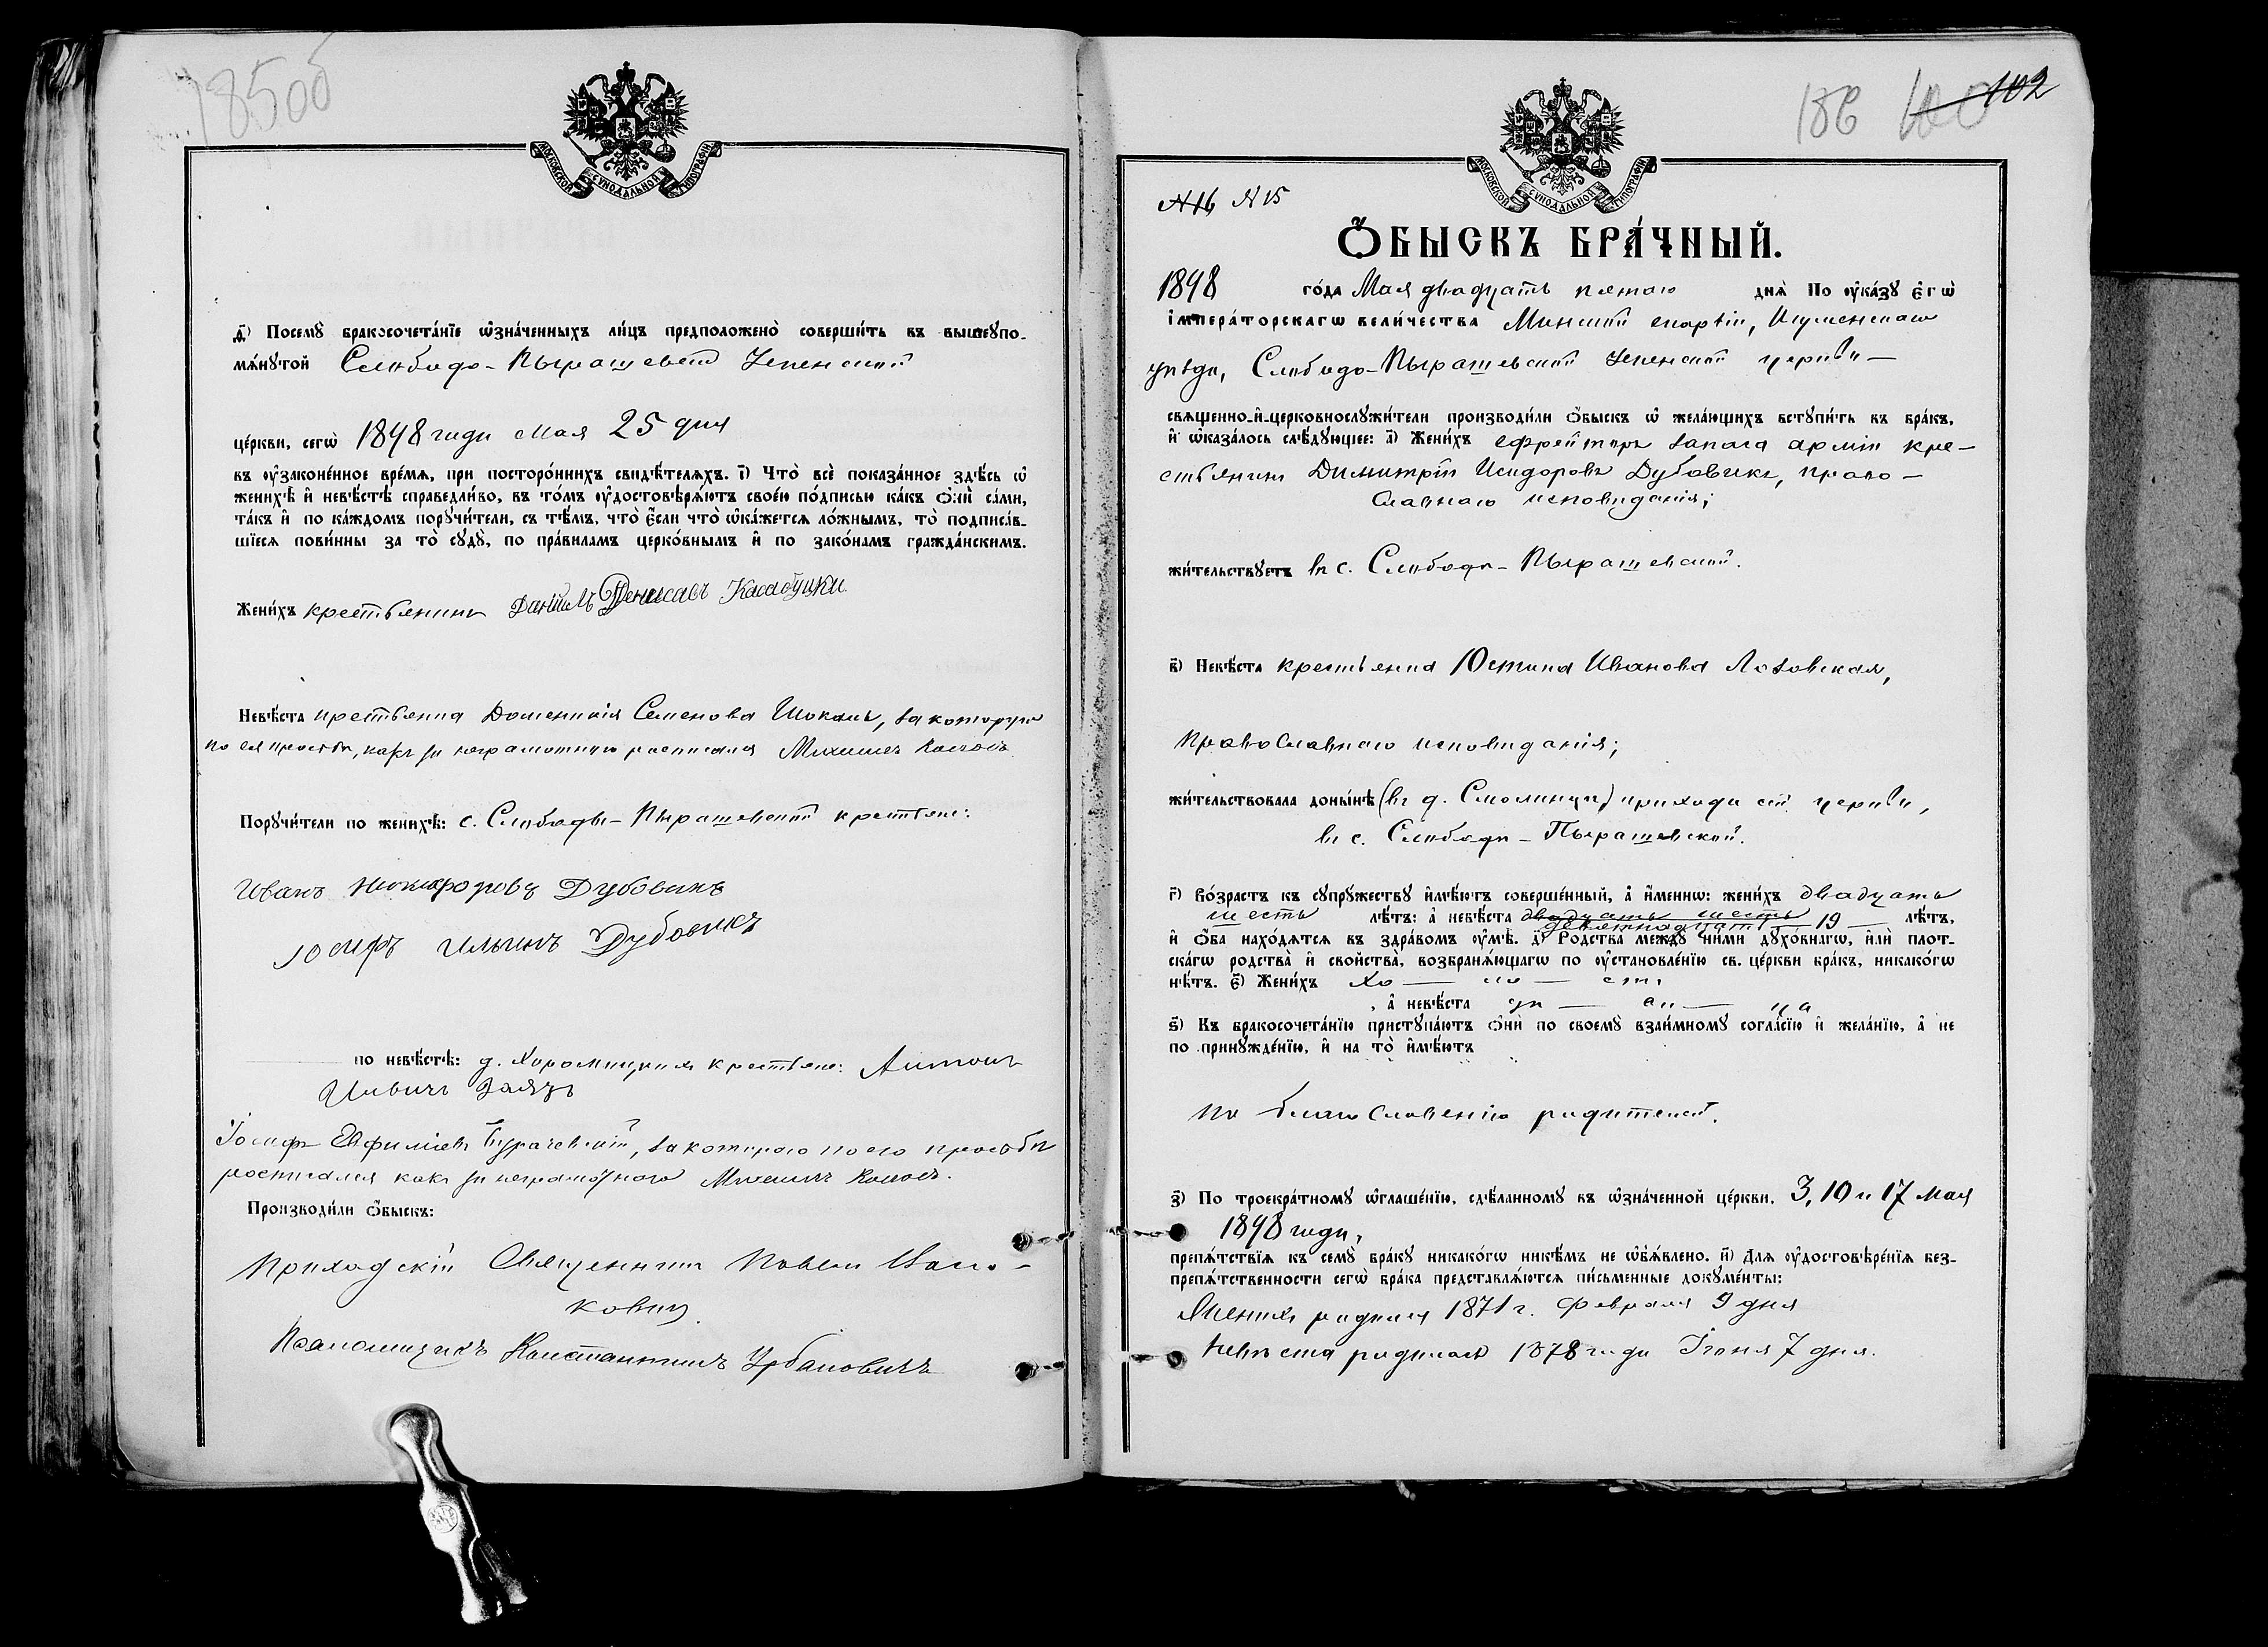 185об
МОСКОВСКОЙ СѴНОДАЛЬНОЙ ТИПОГРАФІИ
д҃) Посемꙋ̀ бракосочета́нїе ѡ҆зна́ченныхъ ли́цъ предположено̀ соверши́ть въ вышеꙋпо-
мѧ́нꙋтой Слободо-Пырашевской Успенской
це́ркви, сегѡ̀ 1898 года Мая 25 дня
въ ᲂу҆законе́нное вре́мѧ, при посторо́ннихъ свидѣ́телѧхъ. і҃) Что̀ всѐ пока́занное здѣ́сь ѡ҆
женихѣ̀ и҆ невѣ́стѣ справедли́во, въ то́мъ ᲂу҆достовѣрѧ́ютъ свое́ю по́дписью ка́къ ѻ҆нѝ са́ми,
та́къ и҆ по ка́ждомъ порꙋчи́тели, съ тѣ́мъ, что̀ є҆́сли что̀ ѡ҆ка́жетсѧ ло́жнымъ, то̀ подписа́в-
шїесѧ пови́нны за то̀ сꙋдꙋ̀, по пра́виламъ церко́внымъ и҆ по зако́намъ гражда́нскимъ.
Жени́хъ крестьянинъ Данiилъ Денисавъ Касабуцки
Невѣ́ста крестьянка Домникія Семенова Шокаль, за которую
по ея просьбѣ, какъ за неграмотную росписался Михаилъ
Порꙋчи́тели по женихѣ̀: с. Слободы-Пырашевской крестьяне:
Иванъ Никифоровъ Дубовикъ
Юсифъ Ильинъ Дубовикъ
по невѣ́стѣ: д. Хоромицкихъ крестьяне: Антонъ
Ильичъ Заяцъ
Іосифъ Евфиміевъ Бурачевскій, за котораго по его просьбѣ
росписался какъ за неграмотнаго Михаилъ
Производи́ли ѻ҆́быскъ:
Приходскій Священникъ Павелъ
ковичъ
Псаломщикъ Константинъ Урбановичъ
186 100 102
МОСКОВСКОЙ СѴНОДАЛЬНОЙ ТИПОГРАФІИ
№16 №15
Ѻ҆́БЫСКЪ БРА́ЧНЫЙ.
1898 го́да Мая двадцать пятаго днѧ̀ По ᲂу҆ка́зꙋ є҆гѡ̀
і҆мпера́торскагѡ вели́чества Минской епархіи, Игуменскаго
уѣзда, Слободо-Пырашевской Успенской церкви
свѧще́нно-и҆-церковнослꙋжи́тели производи́ли ѻ҆́быскъ ѡ҆ жела́ющихъ встꙋпи́ть въ бра́къ,
и҆ ѡ҆каза́лось слѣ́дꙋющее: а҃) Жени́хъ ефрейторъ запаса арміи кре-
стьянинъ Димитрій Исидоровъ Дубовикъ, право-
славнаго исповѣданія;
жи́тельствꙋетъ въ с. Слободѣ-Пырашевской.
в҃) Невѣ́ста крестьянка Юстина Иванова Лозовская,
православнаго исповѣданія;
жи́тельствовала доны́нѣ (въ д. Смолинцы) прихода сей церкви,
въ с. Слободѣ-Пырашевской.
г҃) Во́зрастъ къ сꙋпрꙋ́жествꙋ и҆мѣ́ютъ соверше́нный, а҆ и҆́меннѡ: жени́хъ двадцать
шесть лѣ́тъ: а҆ невѣ́ста двадцать шесть 19 лѣ́тъ,
девятнадцать
и҆ ѻ҆́ба нахо́дѧтсѧ въ здра́вомъ ᲂу҆мѣ̀. д҃) Родства̀ междꙋ̀ ни́ми дꙋхо́внагѡ, и҆лѝ плот-
ска́гѡ родства̀ и҆ сво́йства̀, возбранѧ́ющагѡ по ᲂу҆становле́нїю св. це́ркви бра́къ, никако́гѡ
нѣ́тъ. є҃) Жени́хъ хо — ло — стъ
, а҆ невѣ́ста дѣ — ви — ца
ѕ҃) Къ бракосочета́нїю пристꙋпа́ютъ ѻ҆нѝ по своемꙋ̀ взаи́мномꙋ согла́сїю и҆ жела́нїю, а҆ не
по принꙋжде́нїю, и҆ на то̀ и҆мѣ́ютъ
по благословенію родителей.
з҃) По троекра́тномꙋ ѡ҆глаше́нїю, сдѣ́ланномꙋ въ ѡ҆зна́ченной це́ркви, 3, 10 и 17 Мая
1898 года,
препѧ́тствїѧ къ семꙋ̀ бра́кꙋ никако́гѡ никѣ́мъ не ѡ҆б̾ѧ́влено. и҃) Длѧ ᲂу҆достовѣре́нїѧ без-
препѧ́тственности сегѡ̀ бра́ка представлѧ́ютсѧ пи́сьменные докꙋме́нты:
Женихъ родился 1871 г. Февраля 9 дня
Невѣста родилась 1878 года Іюня 7 дня.